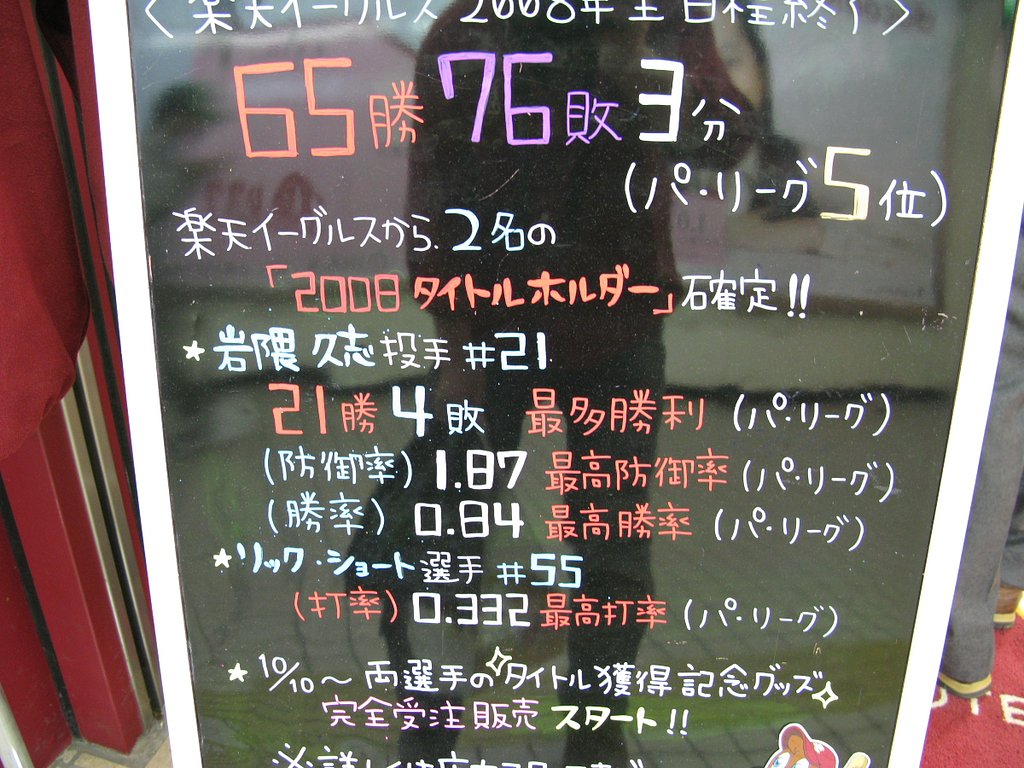 〈楽天イーグルス 2008年全日程終了〉
65勝 76敗 3分
(パ・リーグ5位)
楽天イーグルスから、2名の
「2008タイトルホルダー」確定!!
★岩隈 久志投手 #21
21勝 4敗 最多勝利 (パ・リーグ)
(防御率) 1.87 最高防御率 (パ・リーグ)
(勝率) 0.84 最高勝率 (パ・リーグ)
★リック・ショート選手 #55
(打率) 0.332 最高打率 (パ・リーグ)
★10/10〜両選手のタイトル獲得記念グッズ
完全受注販売 スタート!!
※詳しくは